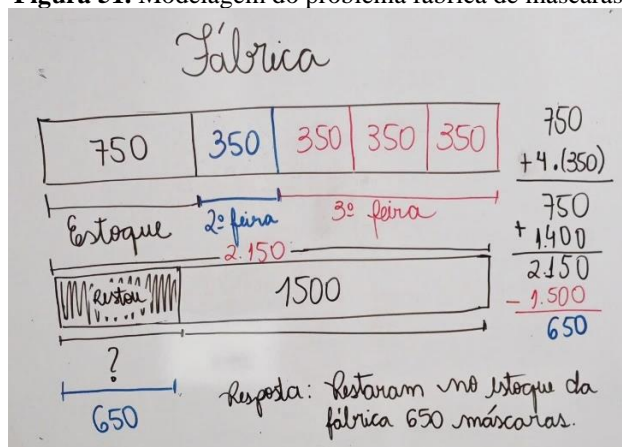 Figura 31. Modelagem do problema fábrica de máscaras
Fábrica
750 350 350 350 350
Estoque 2ª feira 3ª feira
2.150
Restou 1500
?
650
750
+4.(350)
750
+ 1.400
2150
- 1.500
650
Resposta: Restaram no estoque da
fábrica 650 máscaras.